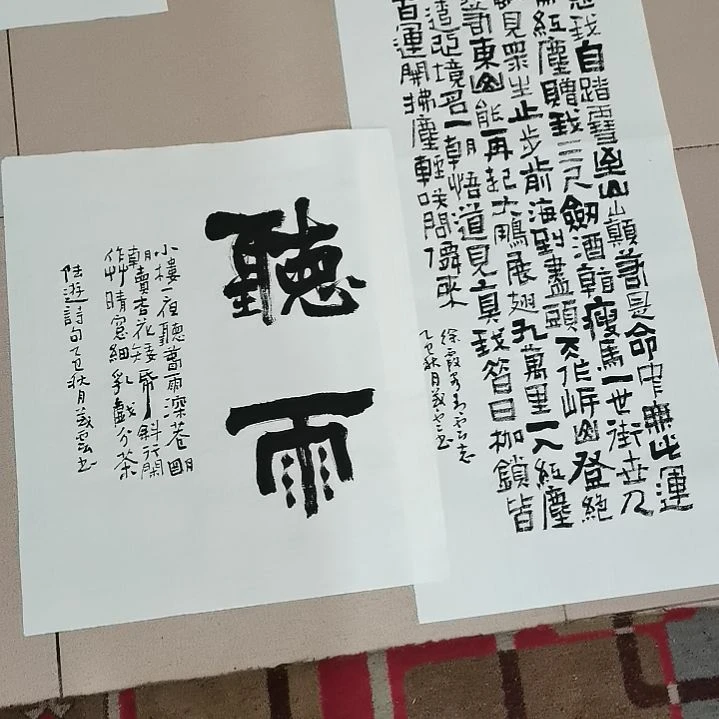 聽雨
小樓一夜聽春雨深巷明
朝賣杏花矮紙斜行閑
作艸晴窗細乳戲分茶
陸遊詩句乙巳秋月義雲书
我自踏雪至山顛若是命中無此運
紅塵贈我三尺劍酒館瘦馬一世街去
見眾生止步前海到盡頭天作岸山登絕
若東山能再起大鵬展翅九萬里一入紅塵
遭亞境若一朝悟道見真我昔日枷鎖皆
首運開拂塵輕
徐霞客青雲志
乙巳秋月義雲书